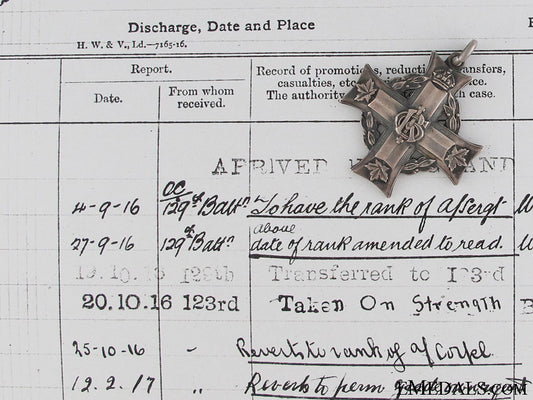 Discharge, Date and Place
H. W. & V., Ld.—7165-16.
Report.
Record of promotions, reductions, transfers,
Date.
From whom received.
casualties, etc.
The authority case.
ARRIVED
4-9-16 OC 129th Battn To have the rank of A/Sergt
above
27-9-16 129th Battn date of rank amended to read.
19.10.16 129th Transferred to 123rd
20.10.16 123rd Taken On Strength
25-10-16 - Reverts to rank of a/Corpl
12.2.17 " Reverts to perm
MEDALS.COM